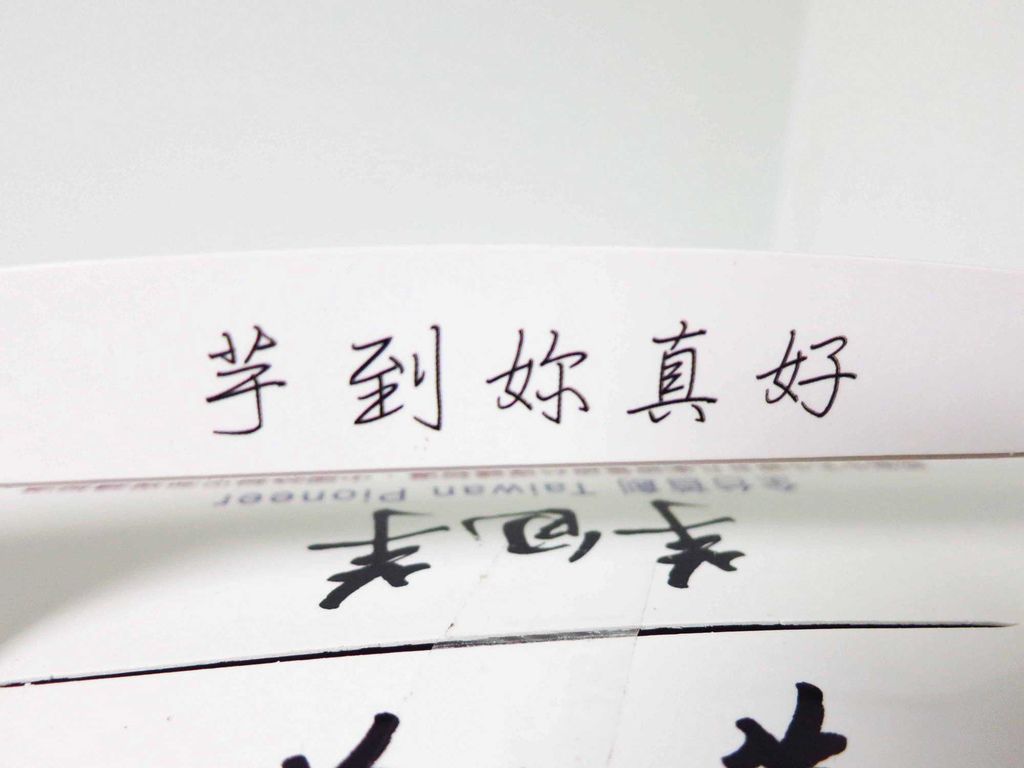 芋到妳真好
全台首創 Taiwan Pioneer
芋包芋